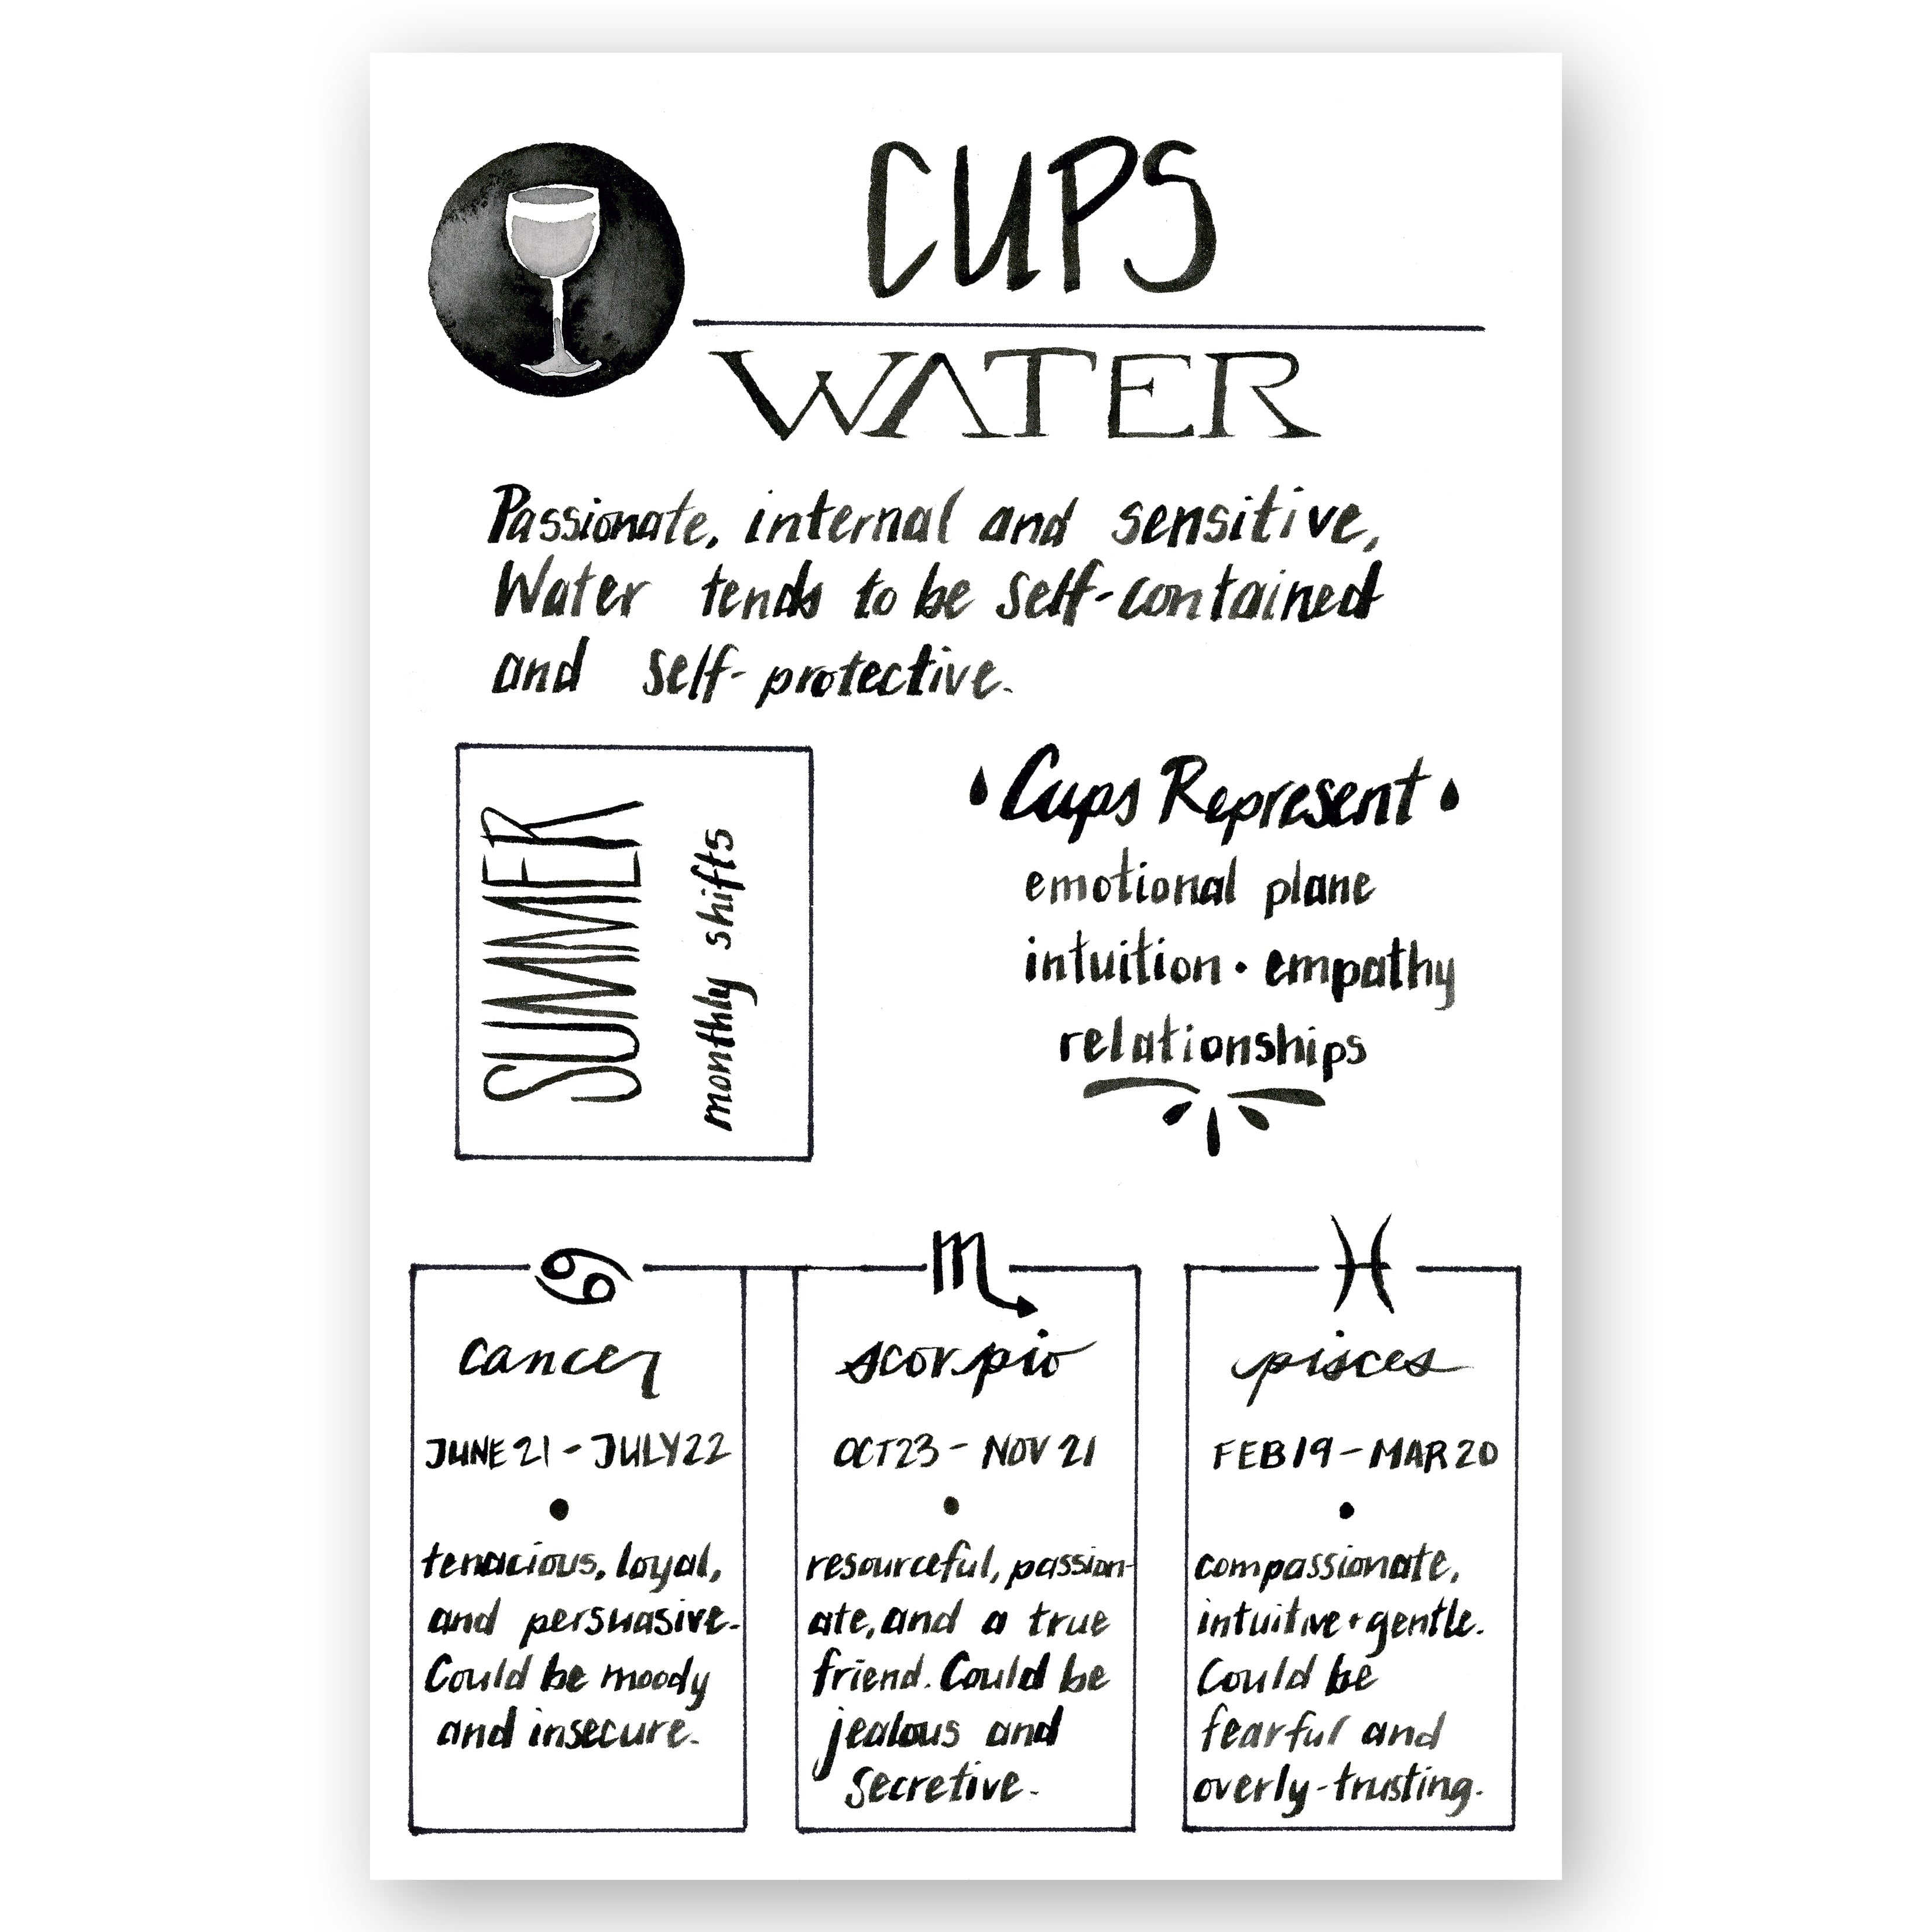 CUPS
WATER
Passionate, internal and sensitive,
Water tends to be self-contained
and self-protective.
SUMMER
monthly shifts
Cups Represent
emotional plane
intuition • empathy
relationships
cancer
JUNE 21 - JULY 22
tenacious, loyal,
and persuasive.
Could be moody
and insecure.
scorpio
OCT 23 - NOV 21
resourceful, passion-
ate, and a true
friend. Could be
jealous and
secretive.
pisces
FEB 19 - MAR 20
compassionate,
intuitive + gentle.
Could be
fearful and
overly-trusting.